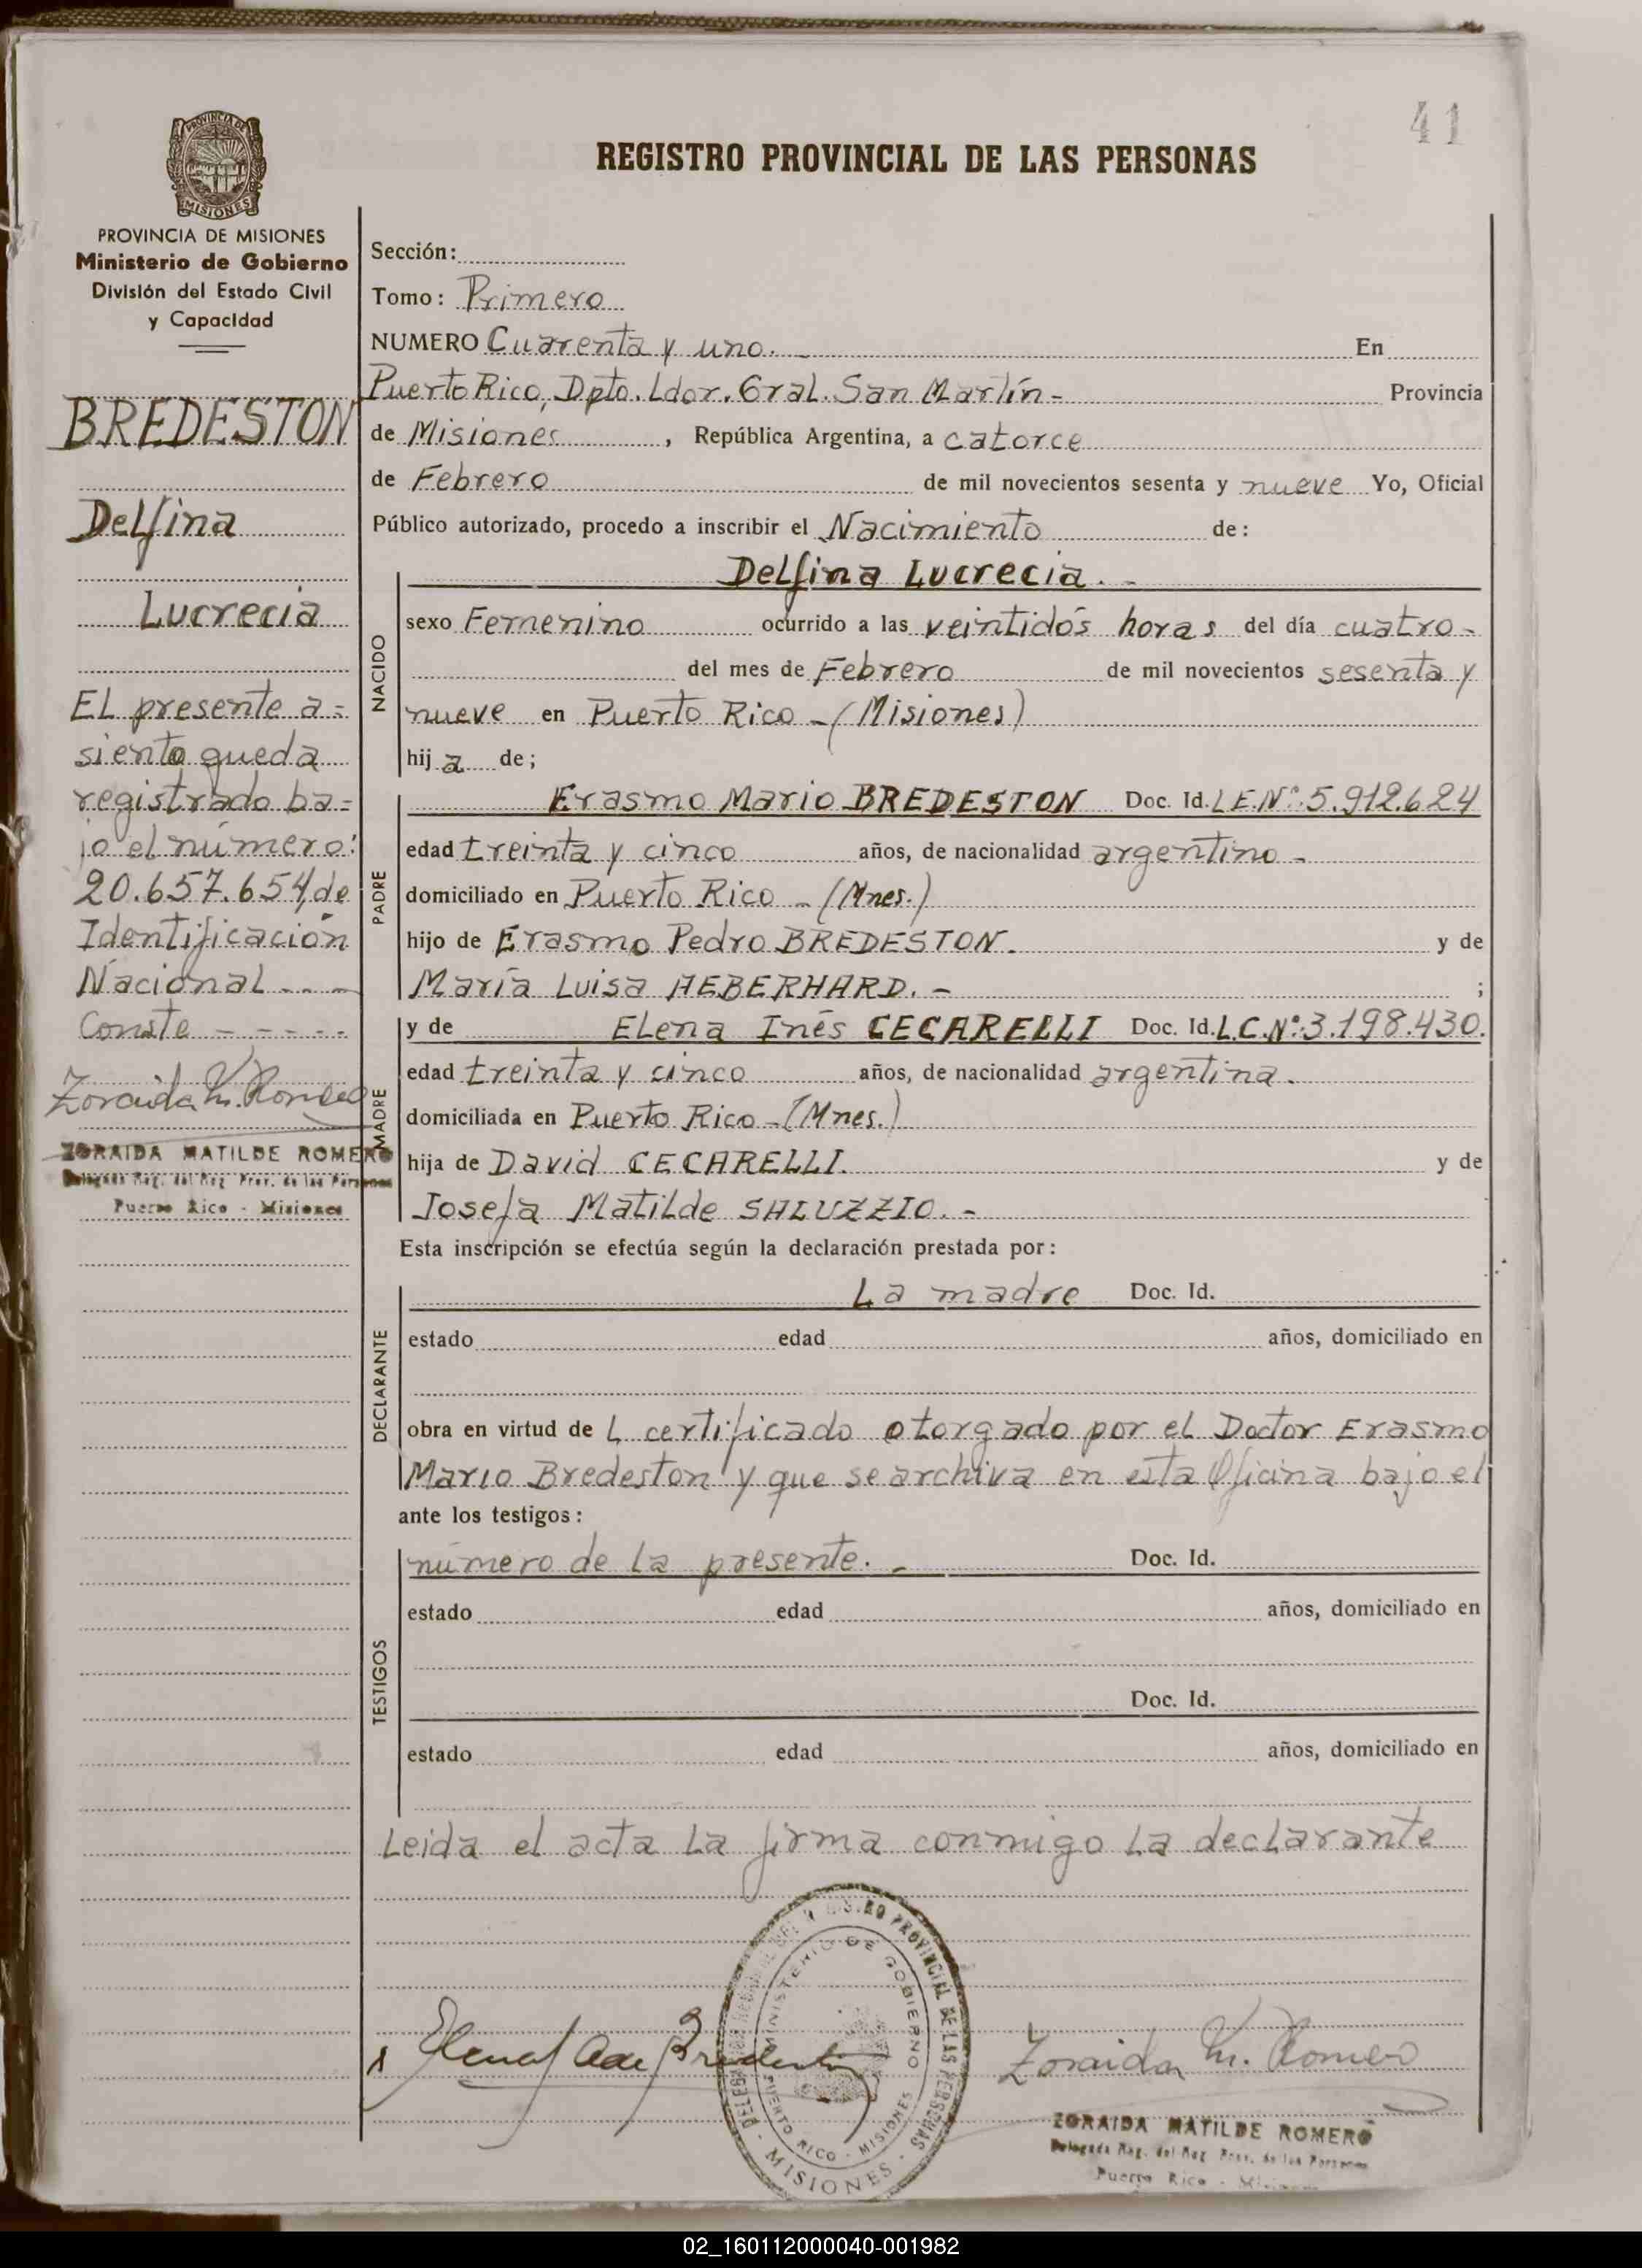 41
REGISTRO PROVINCIAL DE LAS PERSONAS
PROVINCIA DE MISIONES
PROVINCIA DE MISIONES
Ministerio de Gobierno
División del Estado Civil
y Capacidad
BREDESTON
Delfina
Lucrecia
El presente a=
siento queda
registrado ba=
jo el número:
20.657.654, de
Identificación
Nacional - - -
Conste - - - - -
Zoraida M. Romero
ZORAIDA MATILDE ROMERO
Delegada Reg. del Reg. Prov. de las Personas
Puerto Rico - Misiones
Sección:
Tomo: Primero
NUMERO Cuarenta y uno. - En
Puerto Rico, Dpto. Ldor. Gral. San Martín - Provincia
de Misiones, República Argentina, a catorce
de Febrero de mil novecientos sesenta y nueve Yo, Oficial
Público autorizado, procedo a inscribir el Nacimiento de:
Delfina Lucrecia. -
NACIDO
sexo Femenino ocurrido a las veintidós horas del día cuatro -
del mes de Febrero de mil novecientos sesenta y
nueve en Puerto Rico - (Misiones)
hija de;
PADRE
Erasmo Mario BREDESTON Doc. Id. L.E.Nº: 5.912.624
edad treinta y cinco años, de nacionalidad argentino -
domiciliado en Puerto Rico - (Mnes.)
hijo de Erasmo Pedro BREDESTON. y de
María Luisa AEBERHARD. - ;
MADRE
y de Elena Inés CECARELLI Doc. Id. L.C.Nº: 3.198.430.
edad treinta y cinco años, de nacionalidad argentina.
domiciliada en Puerto Rico - (Mnes.)
hija de David CECARELLI. y de
Josefa Matilde SALUZZIO. -
Esta inscripción se efectúa según la declaración prestada por:
DECLARANTE
La madre Doc. Id.
estado edad años, domiciliado en
obra en virtud de l certificado otorgado por el Doctor Erasmo
Mario Bredeston y que se archiva en esta Oficina bajo el
ante los testigos:
TESTIGOS
número de la presente. - Doc. Id.
estado edad años, domiciliado en
Doc. Id.
estado edad años, domiciliado en
Leida el acta la firma conmigo la declarante
REGISTRO PROVINCIAL DE LAS PERSONAS
MINISTERIO DE GOBIERNO
PUERTO RICO - MISIONES
- MISIONES -
Zoraida M. Romero
ZORAIDA MATILDE ROMERO
Delegada Reg. del Reg. Prov. de las Personas
Puerto Rico -
02_160112000040-001982